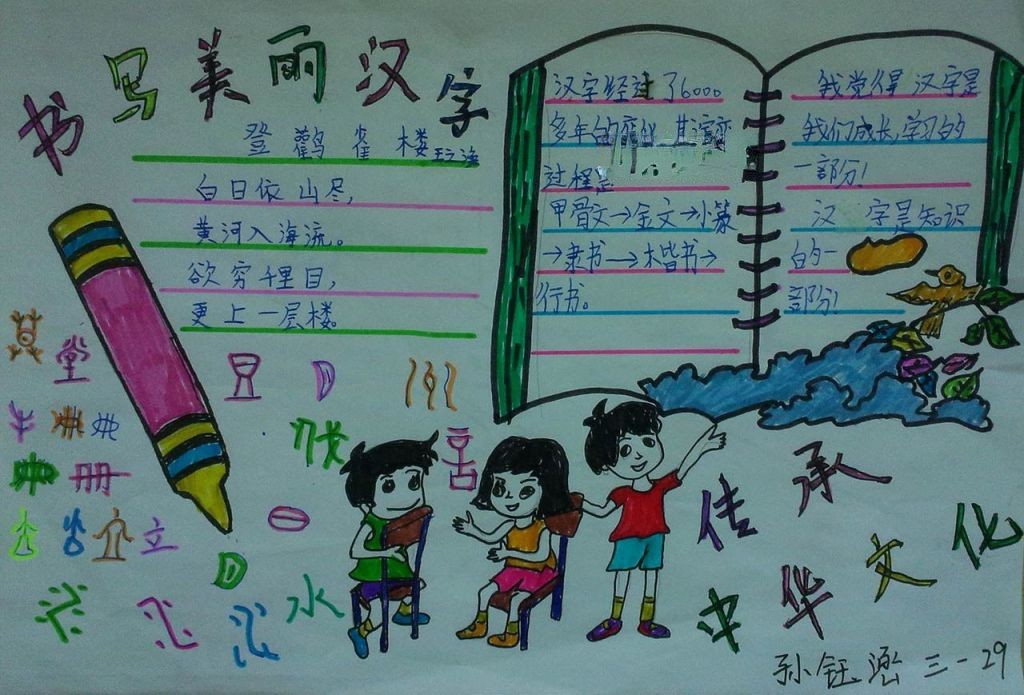 书写美丽汉字
登鹳雀楼 王之涣
白日依山尽,
黄河入海流。
欲穷千里目,
更上一层楼。
汉字经过了6000
多年的变化 其演变
过程是
甲骨文→金文→小篆
→隶书→楷书→
行书。
我觉得 汉字是
我们成长,学习的
一部分!
汉字是知识
的一
部分!
册
立
水
传承
文化
中华
孙钰 三一29